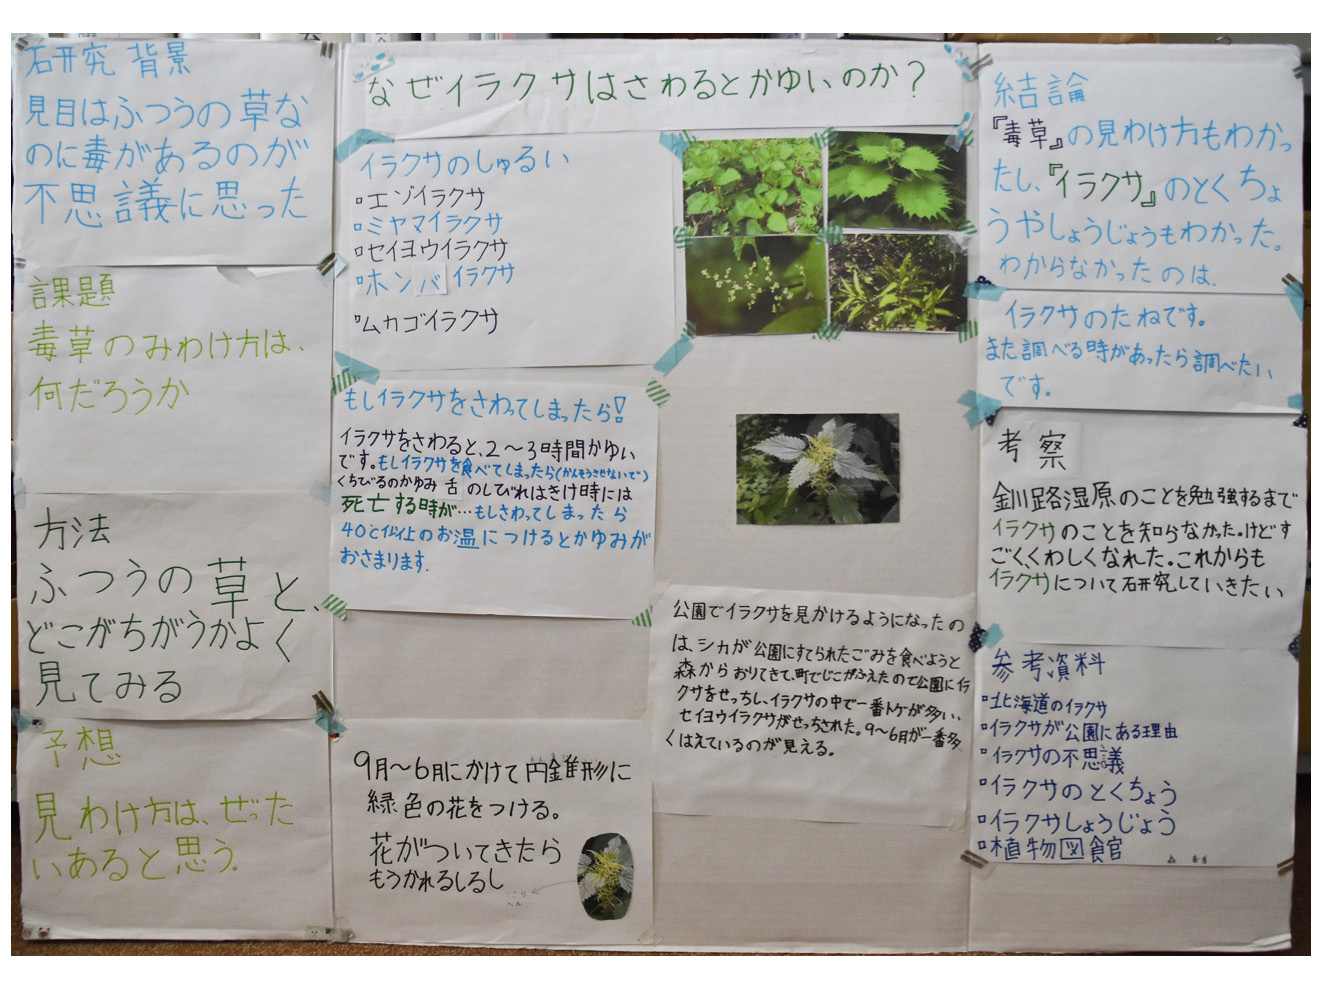 なぜイラクサはさわるとかゆいのか？
研究 背景
見目はふつうの草な
のに毒があるのが
不思議に思った
課題
毒草のみわけ方は、
何だろうか
方法
ふつうの草と、
どこがちがうかよく
見てみる
予想
見わけ方は、ぜった
いあると思う.
イラクサのしゅるい
▫エゾイラクサ
▫ミヤマイラクサ
▫セイヨウイラクサ
▫ホソバイラクサ
▫ムカゴイラクサ
もしイラクサをさわってしまったら!
イラクサをさわると、2〜3時間かゆい
です。もしイラクサを食べてしまったら(かんそうさせないで)
くちびるのかゆみ 舌 のしびれはきけ時には
死亡する時が…もしさわってしまったら
40℃以上のお温につけるとかゆみが
おさまります.
9月〜6月にかけて円錐形に
緑色の花をつける。
花がついてきたら
もうかれるしるし
公園でイラクサを見かけるようになったの
は、シカが公園にすてられたごみを食べようと
森からおりてきて、町でじこがふえたので公園にイラ
クサをせっちし、イラクサの中で一番トゲが多い、
セイヨウイラクサがせっちされた。9〜6月が一番多
くはえているのが見える。
結論
『毒草』の見わけ方もわかっ
たし、『イラクサ』のとくちょ
うやしょうじょうもわかった。
わからなかったのは、
イラクサのたねです。
また調べる時があったら調べたい
です。
考察
釧路湿原のことを勉強するまで
イラクサのことを知らなかった。けどす
ごくくわしくなれた。これからも
イラクサについて研究していきたい
参考資料
▫北海道のイラクサ
▫イラクサが公園にある理由
▫イラクサの不思議
▫イラクサのとくちょう
▫イラクサしょうじょう
▫植物図食官